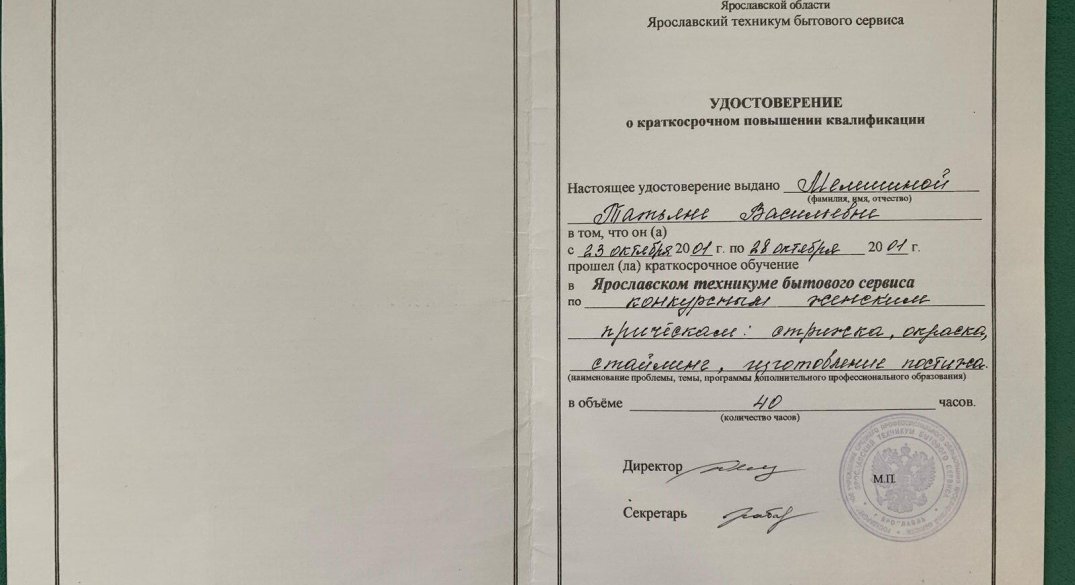 Ярославской области
Ярославский техникум бытового сервиса
УДОСТОВЕРЕНИЕ
о краткосрочном повышении квалификации
Настоящее удостоверение выдано Мелешиной
(фамилия, имя, отчество)
Татьяне Васильевне
в том, что он (а)
с 23 октября 2001 г. по 28 октября 2001 г.
прошел (ла) краткосрочное обучение
в Ярославском техникуме бытового сервиса
по конкурсным женским
прическам: стрижка, окраска,
стайлинг, изготовление постижа.
(наименование проблемы, темы, программы дополнительного профессионального образования)
в объёме 40 часов.
(количество часов)
Директор
М.П.
Секретарь
ЯРОСЛАВСКИЙ ТЕХНИКУМ БЫТОВОГО СЕРВИСА
ЯРОСЛАВЛЬ